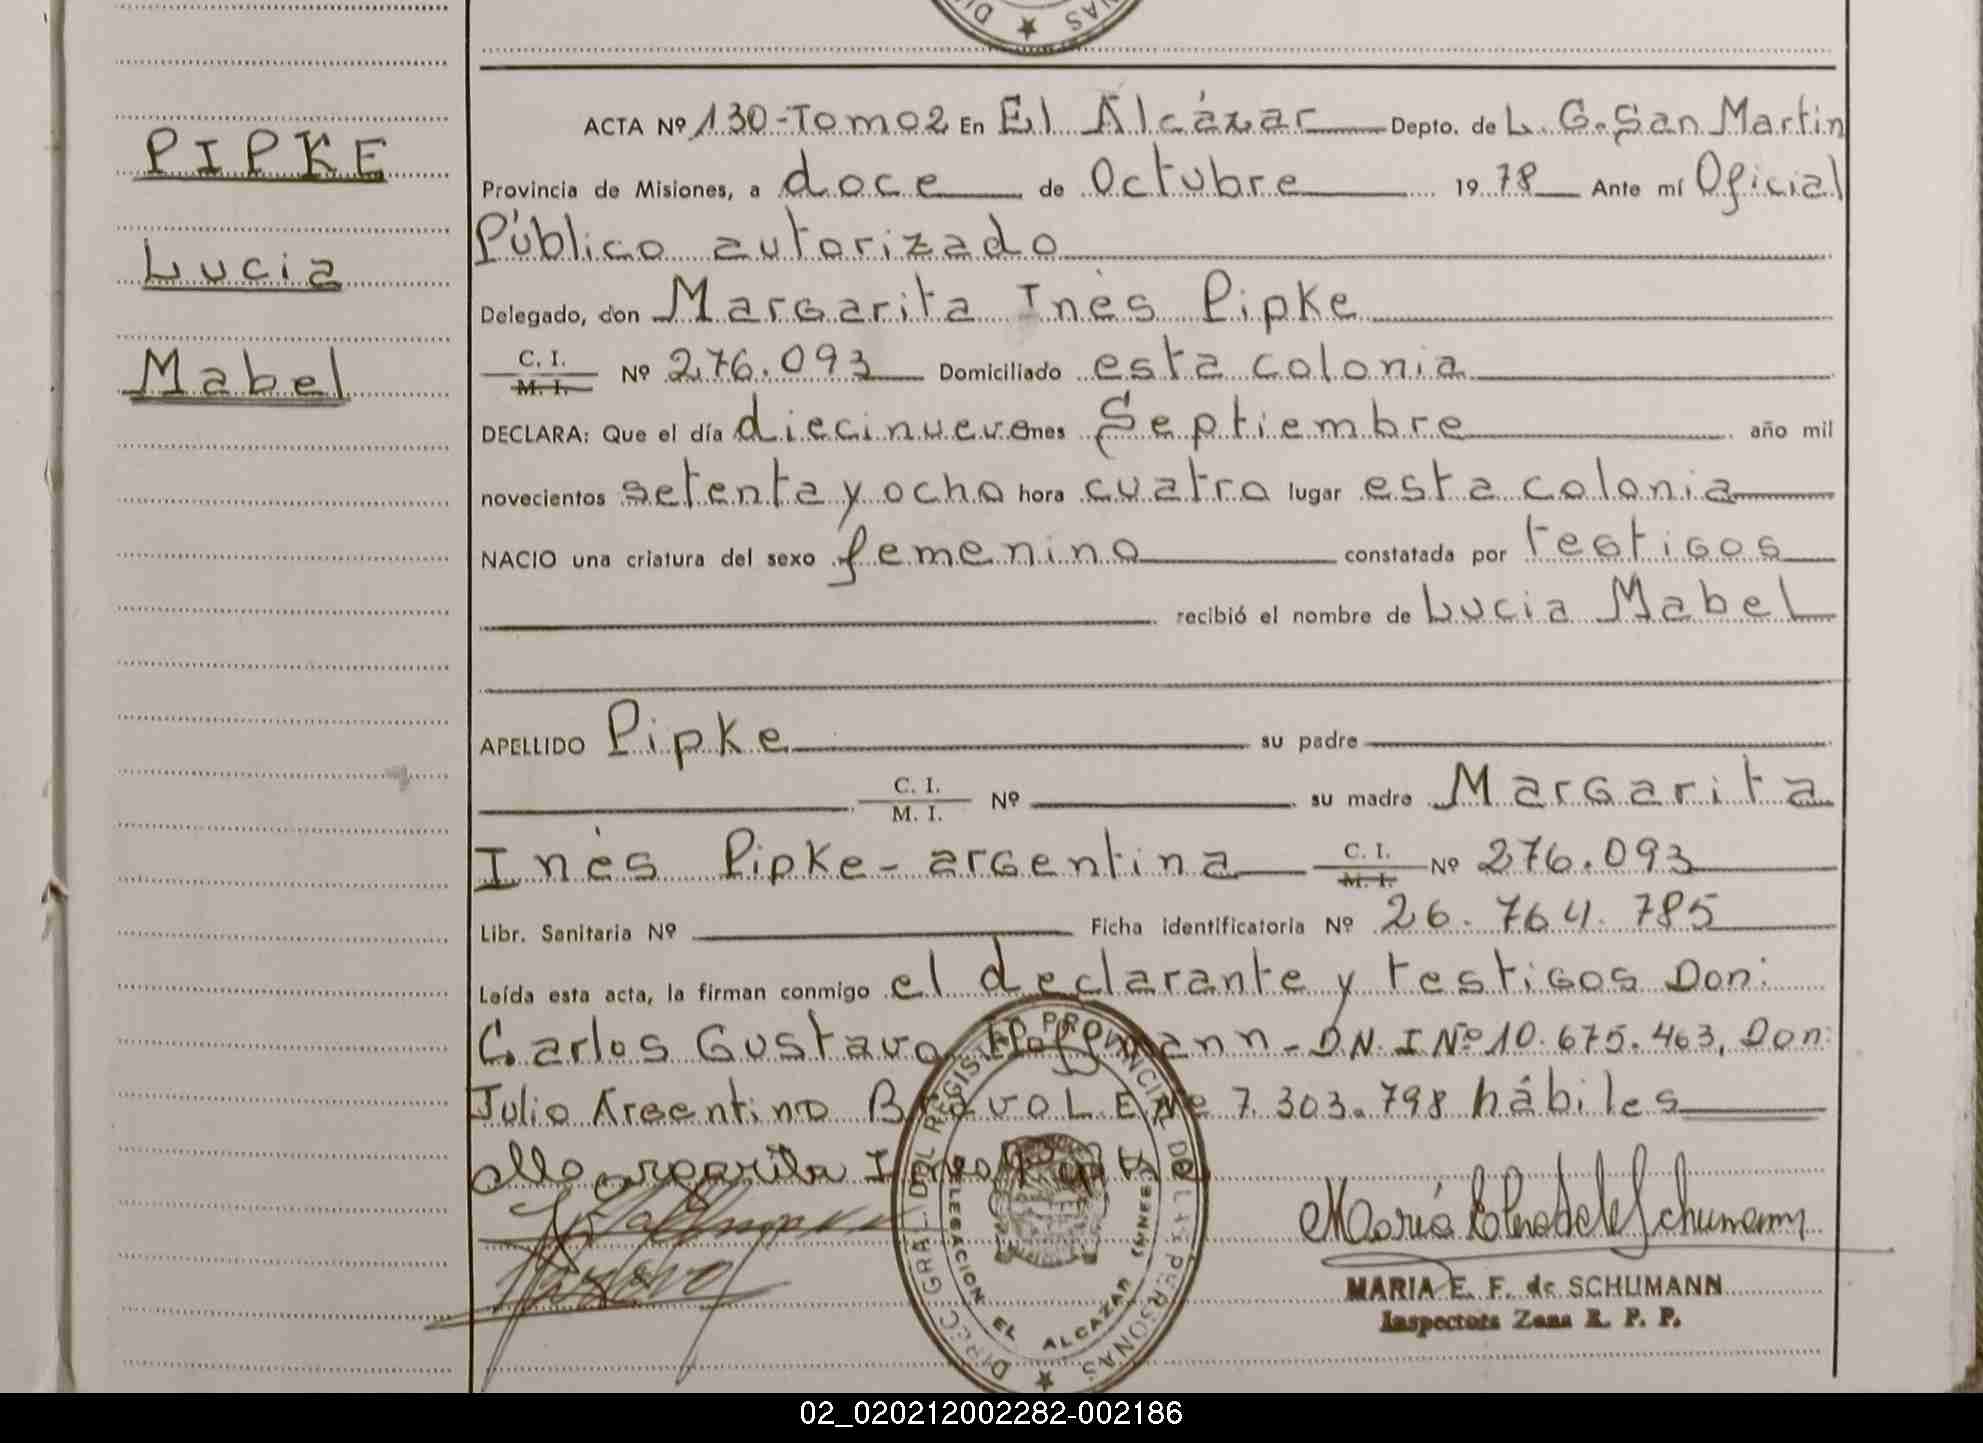 ACTA Nº 130-Tomo 2 En El Alcázar Depto. de L. G. San Martin
PIPKE
Provincia de Misiones, a doce de Octubre 1978 Ante mí Oficial
Público autorizado
Lucia
Delegado, don Margarita Inés Pipke
C. I.
M. I. Nº 276.093 Domiciliado esta colonia
Mabel
DECLARA: Que el día diecinueve mes Septiembre año mil
novecientos setenta y ocho hora cuatro lugar esta colonia
NACIO una criatura del sexo femenino constatada por testigos
recibió el nombre de Lucia Mabel
APELLIDO Pipke su padre
C. I.
M. I. Nº su madre Margarita
Inés Pipke - argentina C. I.
M. I. Nº 276.093
Libr. Sanitaria Nº Ficha identificatoria Nº 26.764.785
Leída esta acta, la firman conmigo el declarante y testigos Don:
Carlos Gustavo Hoffmann - D.N.I Nº 10.675.463, Don:
Julio Argentino Bravo L.E. Nº 7.303.798 hábiles
Margarita Ines Pipke
DIREC. GRAL. DEL REGISTRO PROVINCIAL DE LAS PERSONAS
DELEGACION EL ALCAZAR (MNES.)
MARIA E. F. de SCHUMANN
Inspectora Zona R. P. P.
02_020212002282-002186